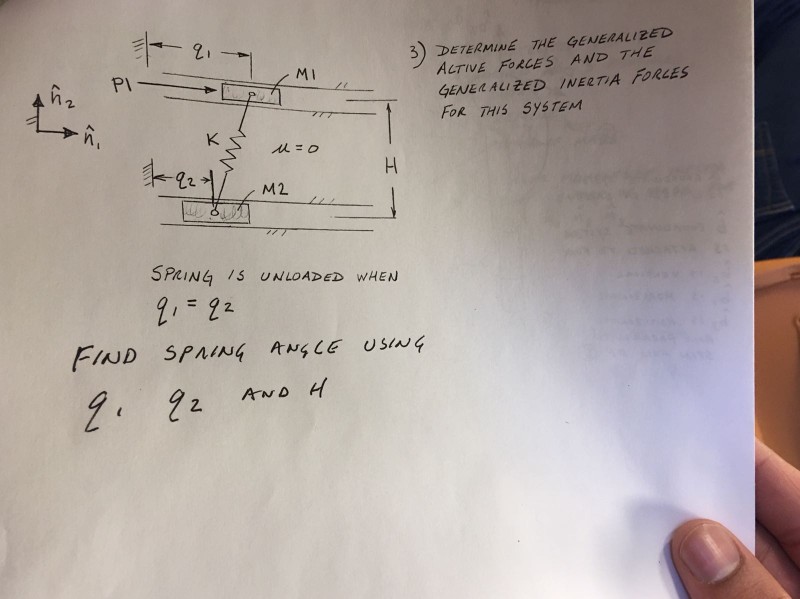 q1
P1
M1
n̂2
n̂1
K
μ = 0
H
q2
M2
3) DETERMINE THE GENERALIZED
ALTIVE FORCES AND THE
GENERALIZED INERTIA FORCES
FOR THIS SYSTEM
SPRING IS UNLOADED WHEN
q1 = q2
FIND SPRING ANGLE USING
q1 q2 AND H